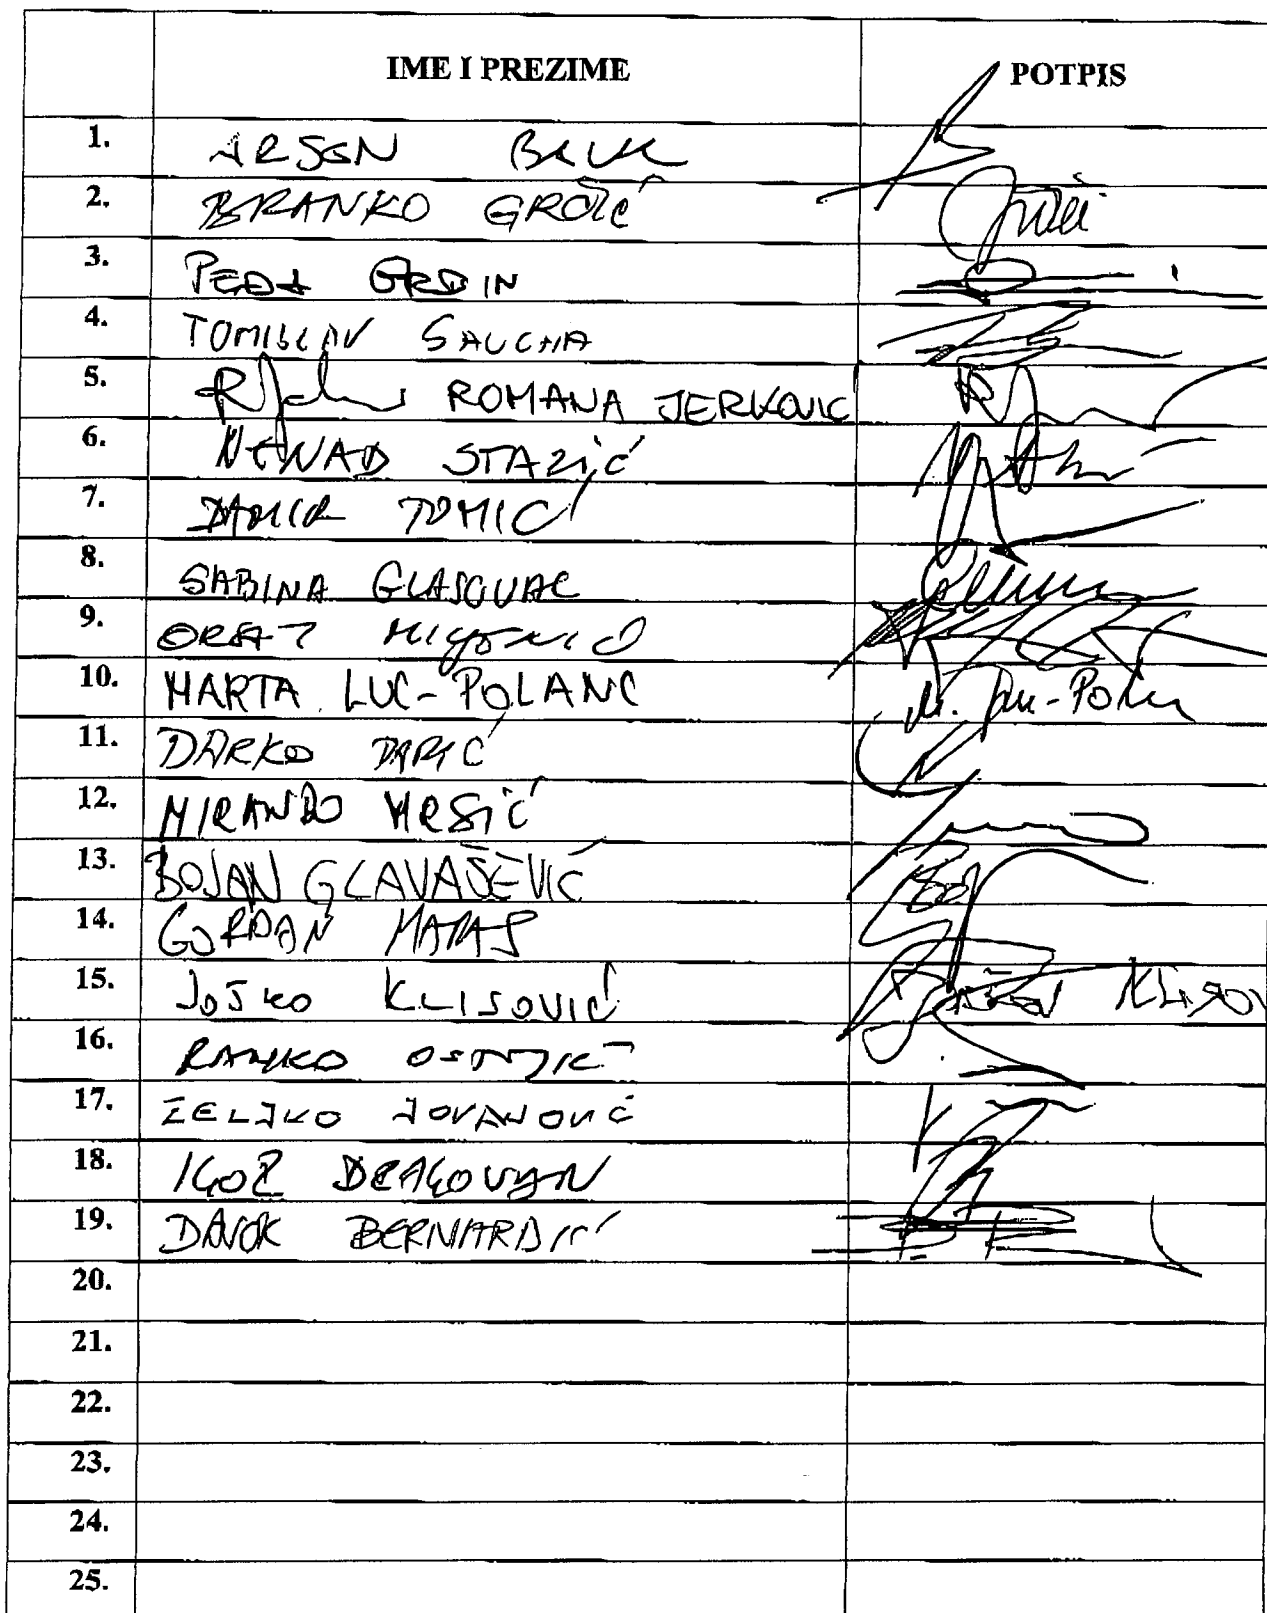 IME I PREZIME POTPIS
1. ARSEN BAUK
2. BRANKO GRČIĆ
3. PEĐA GRBIN
4. TOMISLAV SAUCHA
5. ROMANA JERKOVIC
6. NENAD STAZIĆ
7. DAMIR TOMIĆ
8. SABINA GLASOVAC
9. ORSAT MILJENIĆ
10. MARTA LUC-POLANC
11. DARKO PARIĆ
12. MIRANDO MRSIĆ
13. BOJAN GLAVAŠEVIĆ
14. GORDAN MARAS
15. JOŠKO KLISOVIĆ
16. RANKO OSTOJIĆ
17. ŽELJKO JOVANOVIĆ
18. IGOR DRAGOVAN
19. DAVOR BERNARDIĆ
20.
21.
22.
23.
24.
25.